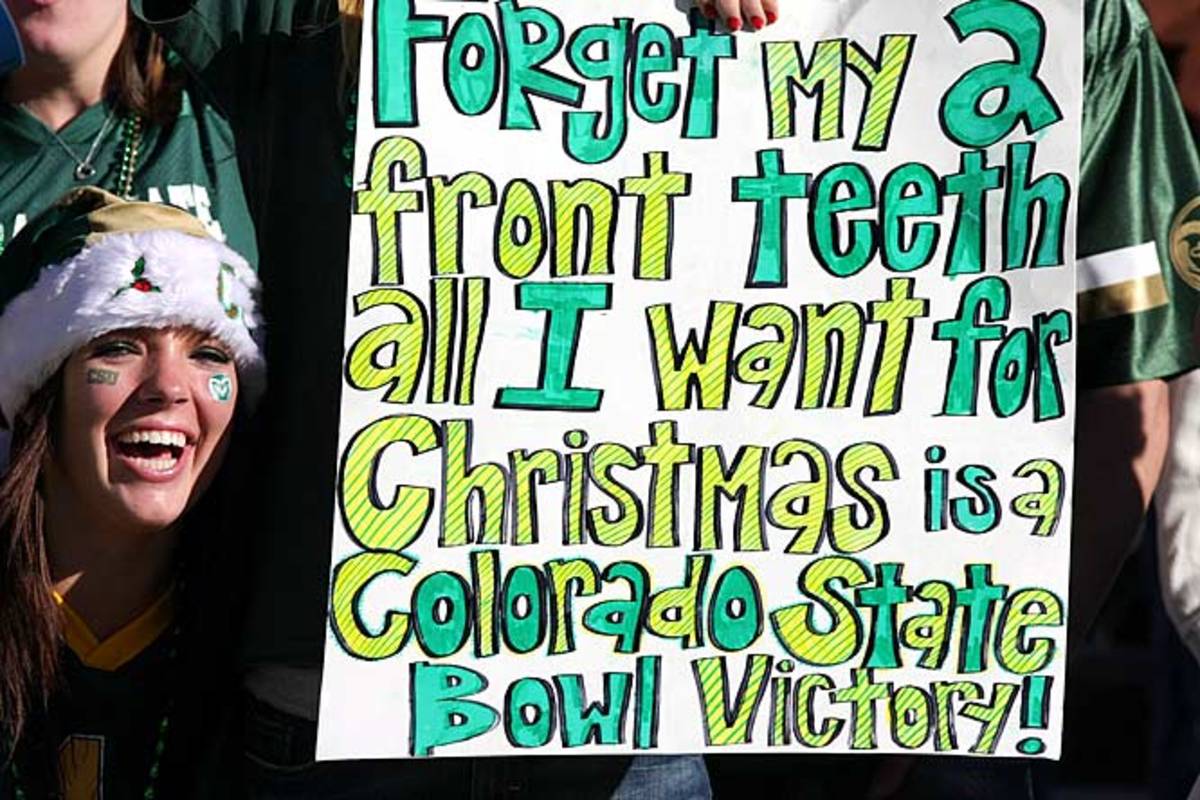 Forget my 2
front teeth
all I want for
Christmas is a
Colorado State
Bowl Victory!
CSU